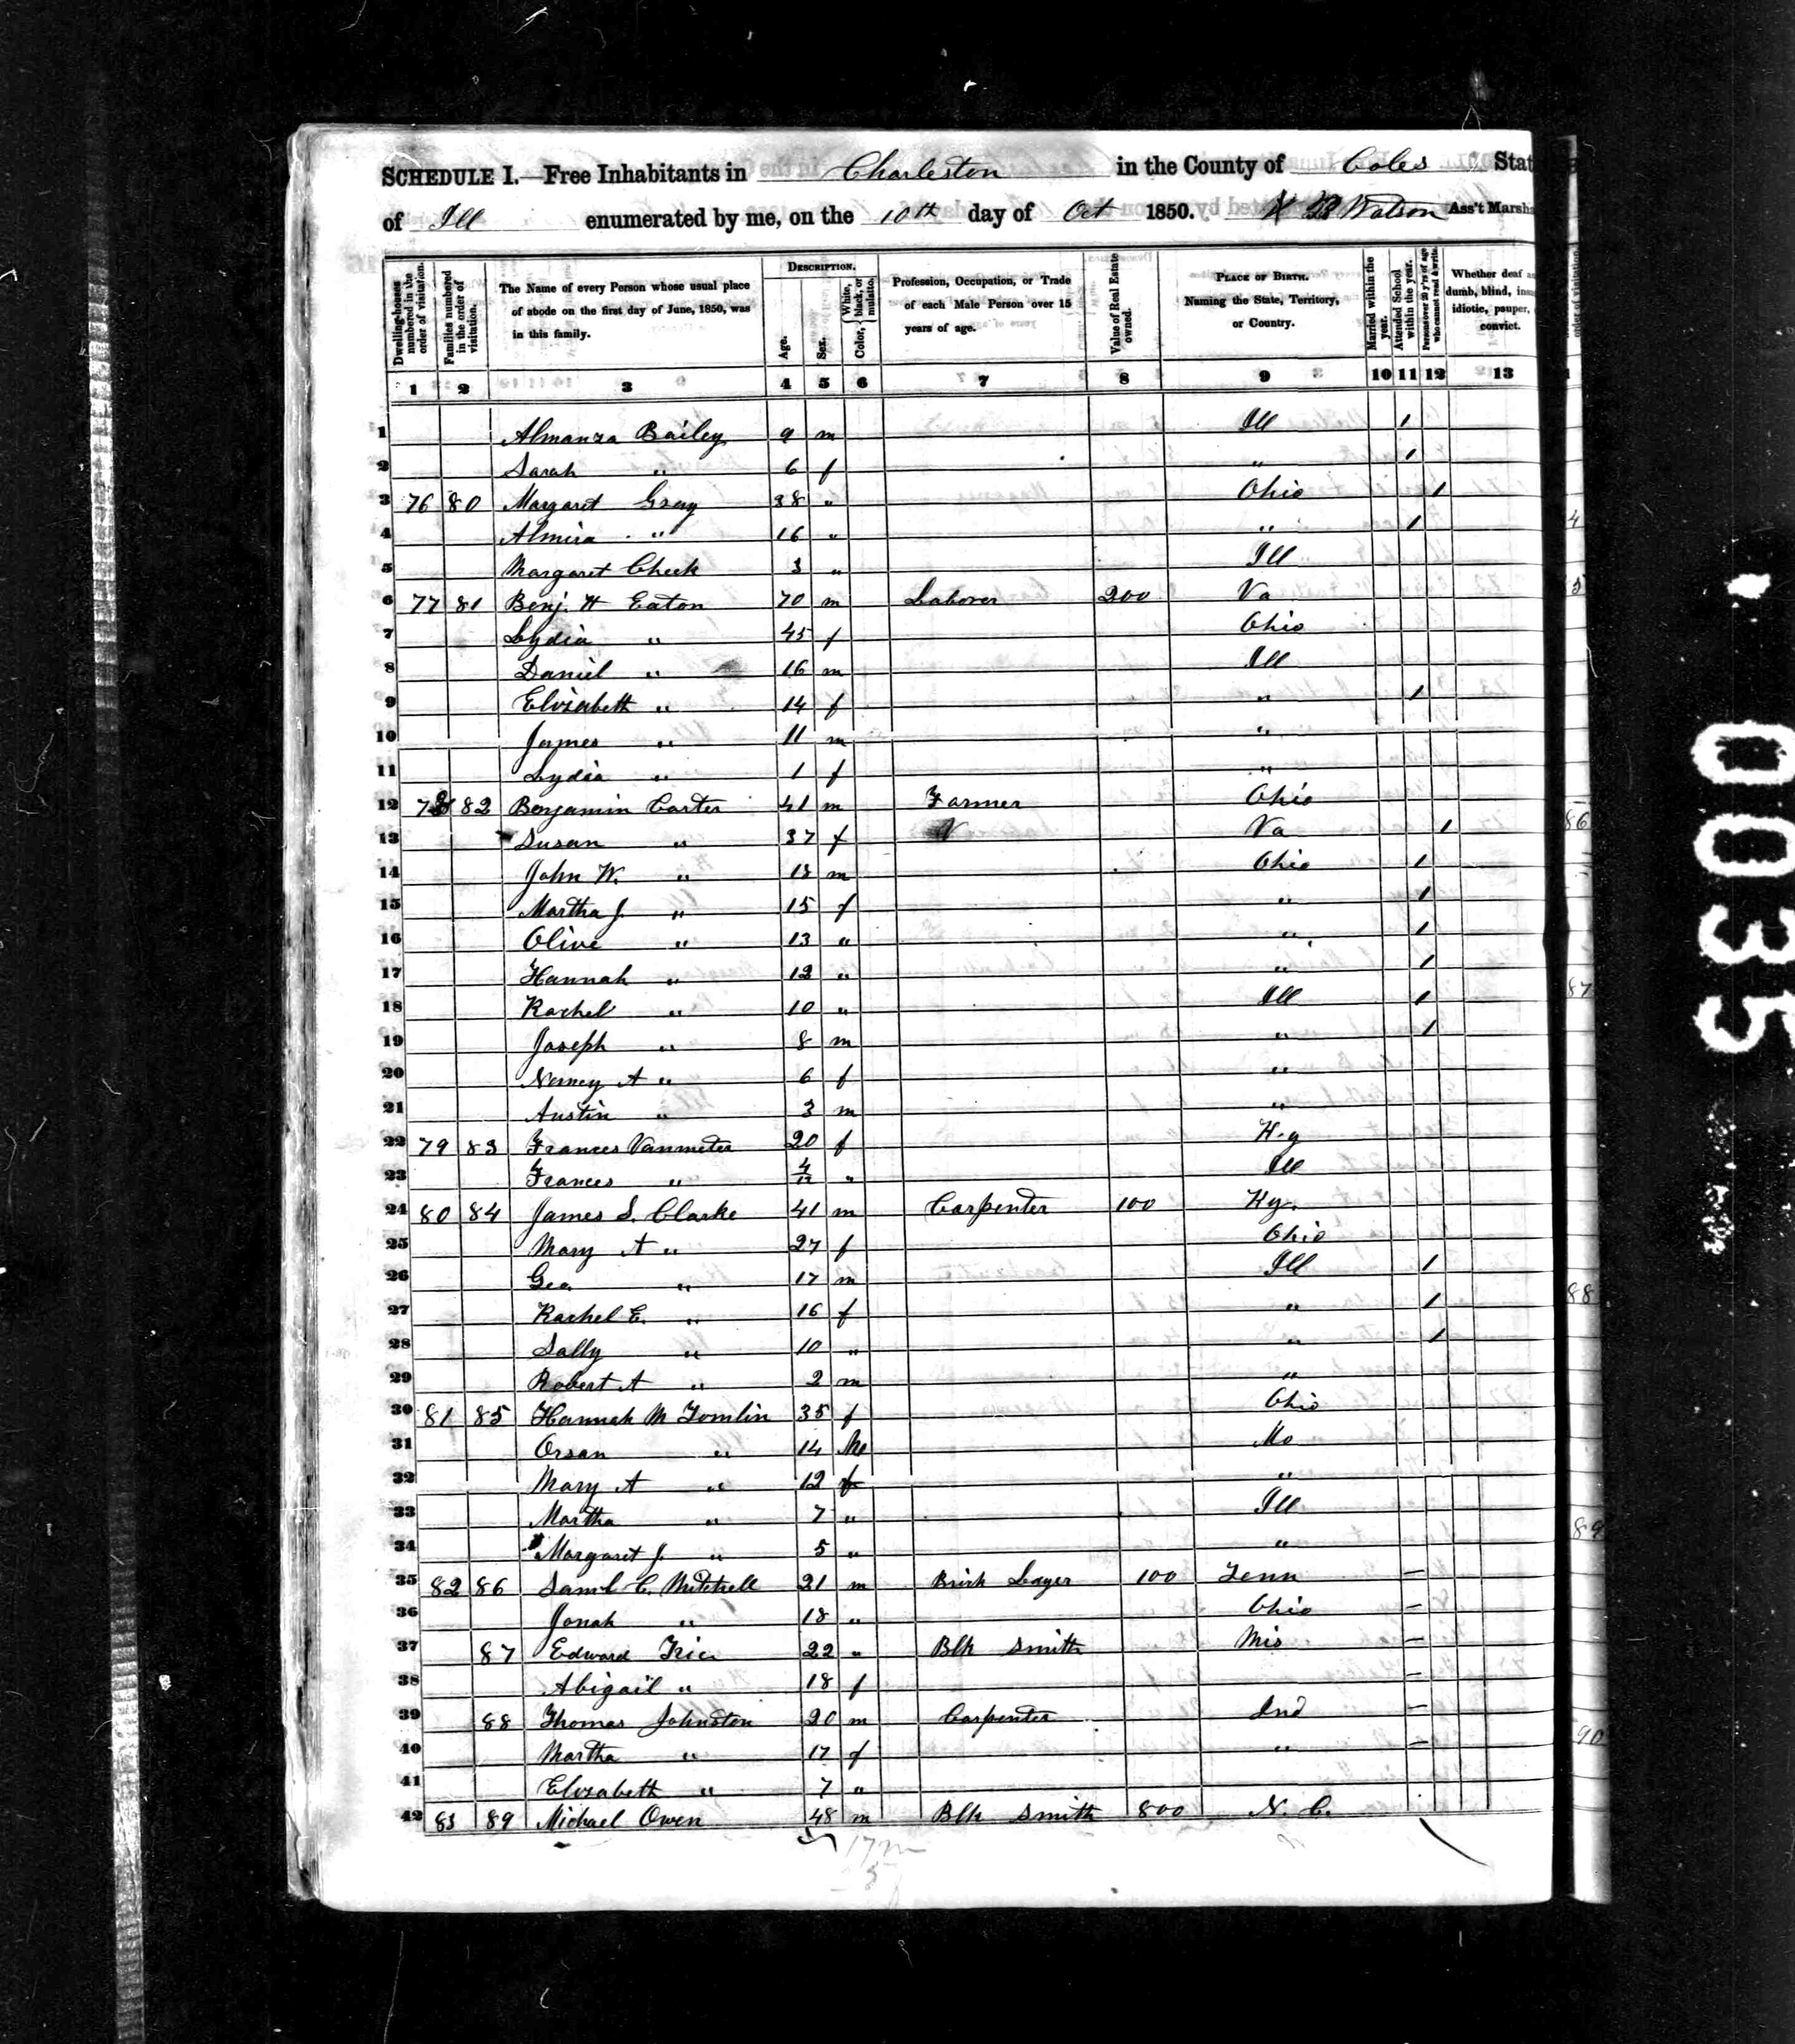 SCHEDULE I.—Free Inhabitants in Charleston in the County of Coles Stat
of Ill enumerated by me, on the 10th day of Oct 1850. Watson Ass't Marsha
Dwelling-houses numbered in the order of visitation.
Families numbered in the order of visitation.
The Name of every Person whose usual place of abode on the first day of June, 1850, was in this family.
DESCRIPTION.
Age.
Sex.
Color, White, black, or mulatto.
Profession, Occupation, or Trade of each Male Person over 15 years of age.
Value of Real Estate owned.
PLACE OF BIRTH. Naming the State, Territory, or Country.
Married within the year.
Attended School within the year.
Persons over 20 y'rs of age who cannot read & write.
Whether deaf a dumb, blind, insa idiotic, pauper, convict.
1 2 3 4 5 6 7 8 9 10 11 12 13
1 Almanza Bailey 9 m Ill /
2 Sarah " 6 f " /
3 76 80 Margaret Gray 38 " Ohio /
4 Almira " 16 " " /
5 Margaret Cheek 3 " Ill
6 77 81 Benj. H Eaton 70 m Laborer 200 Va
7 Lydia " 45 f Ohio
8 Daniel " 16 m Ill
9 Elizabeth " 14 f " /
10 James " 11 m "
11 Lydia " 1 f "
12 78 82 Benjamin Carter 41 m Farmer Ohio
13 Susan " 37 f Va /
14 John W. " 18 m Ohio /
15 Martha J. " 15 f " /
16 Olive " 13 " " /
17 Hannah " 12 " " /
18 Rachel " 10 " Ill /
19 Joseph " 8 m " /
20 Nancy A " 6 f "
21 Austin " 3 m "
22 79 83 Frances Vanmeter 20 f Ky
23 Frances " 4/12 " Ill
24 80 84 James S. Clarke 41 m Carpenter 100 Ky.
25 Mary A " 27 f Ohio
26 Geo " 17 m Ill /
27 Rachel E. " 16 f " /
28 Sally " 10 " " /
29 Robert A " 2 m "
30 81 85 Hannah M Tomlin 35 f Ohio
31 Orsan " 14 M Mo
32 Mary A " 12 f "
33 Martha " 7 " Ill
34 Margaret J. " 5 " "
35 82 86 Saml C. Mitchell 21 m Brick Layer 100 Tenn —
36 Jonah " 18 " Ohio —
37 87 Edward 22 " Blk Smith Mis —
38 Abigail " 18 f —
39 88 Thomas Johnston 20 m Carpenter Ind —
40 Martha " 17 f " —
41 Elizabeth " 7 "
42 83 89 Michael Owen 48 m Blk Smith 800 N. C.
17 m
5
86
87
88
89
90
0035